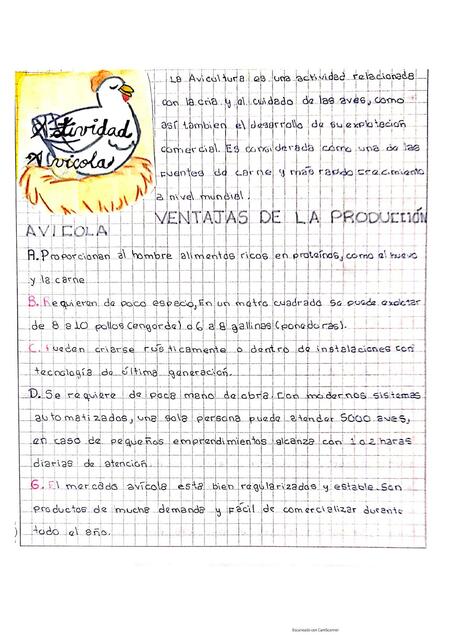 Actividad
Avícola
La Avicultura es una actividad relacionada
con la cría y al cuidado de las aves, como
así tambien el desarrollo de su explotación
comercial. Es considerada como una de las
fuentes de carne y más rapido crecimiento
a nivel mundial.
VENTAJAS DE LA PRODUCCIÓN
AVICOLA
A. Proporcionan al hombre alimentos ricos en proteínas, como el huevo
y la carne
B. Requieren de poco espacio, En un metro cuadrado se puede explotar
de 8 a 10 pollos (engorde) o 6 a 8 gallinas (ponedoras).
C. Pueden criarse rústicamente o dentro de instalaciones con
tecnología de última generación.
D. Se requiere de poca mano de obra. Con modernos sistemas
automatizados, una sola persona puede atender 5000 aves,
en caso de pequeños emprendimientos alcanza con 1 o 2 horas
diarias de atención.
G. El mercado avícola esta bien regularizados y estable. Son
productos de mucha demanda y fácil de comercializar durante
todo el año.
Escaneado con CamScanner